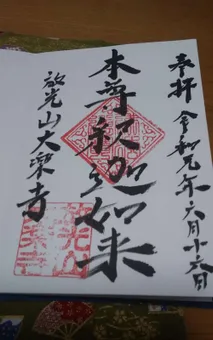 奉拝 令和元年六月十六日
本尊釈迦如来
放光山大栗寺
放光山
栗寺